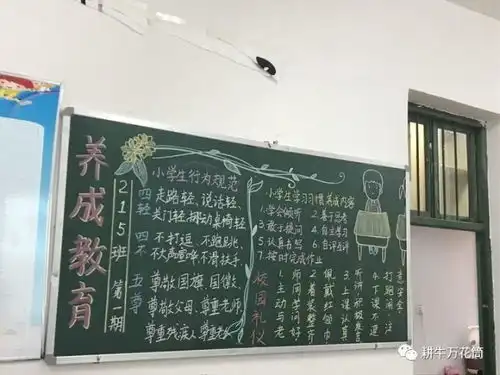 养成教育
215班 第一期
小学生行为规范
四轻 走路轻、说话轻、
关门轻、挪动桌椅轻
四不 不打逗、不跑跳、
不大声喧哗、不滑扶手
五尊 尊敬国旗、国徽、
尊敬父母、尊重老师
尊重残疾人、尊重
小学生学习习惯养成内容
1.学会倾听 2.善于思考
3.敢于提问 4.自主学习
5.认真书写 6.自评互评
7.按时完成作业
校园礼仪
1.主动与老
师同学问好
2.着装整齐
佩戴红领巾
3.上课认真
听讲积极发言
4.下课不追
打跑闹、注
意安全
耕牛万花筒